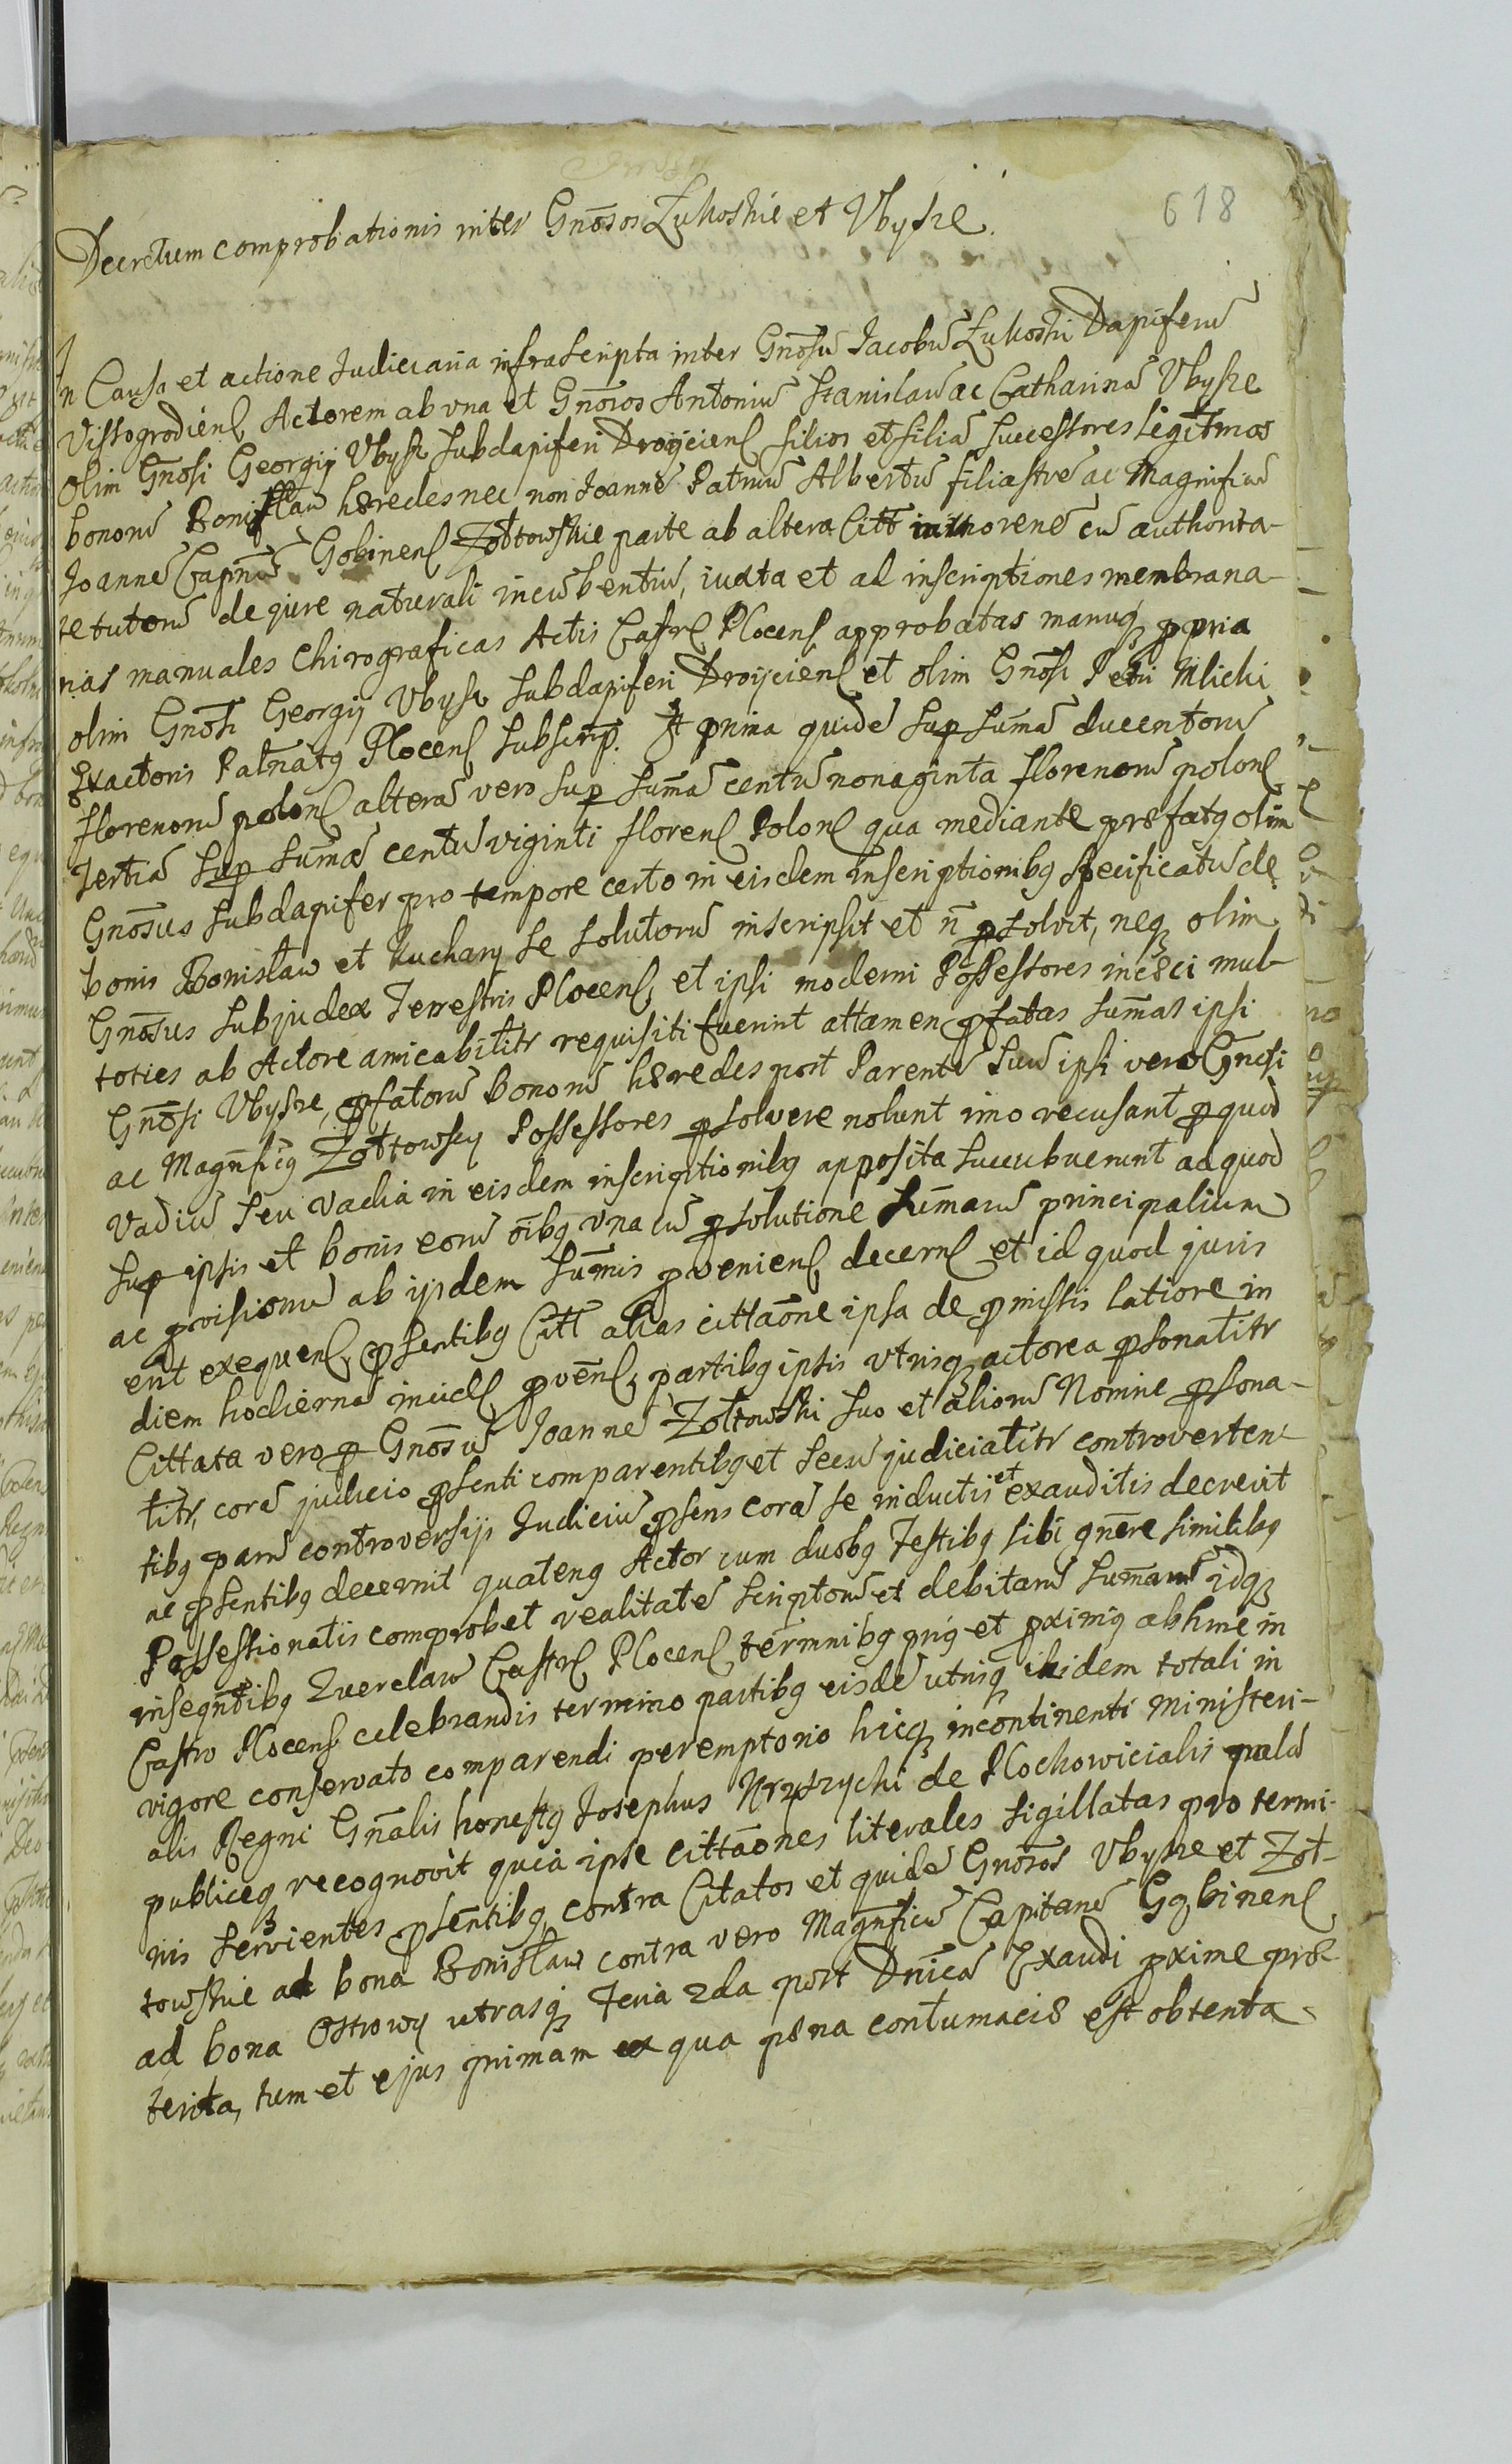 618
Decretum comprobationis inter Gnōsos Łukoskie et Vbysze.
In Causa et actione Judiciaria infrascripta inter Gnōsū Jacobū Łukoski Dapiferū
Vissogrodienſ Actorem ab vna et Gnōsos Antoniū Stanislaū ac Catharinā Vbysze
olim Gnōsi Georgij Vbysz Subdapiferi Droijcienſ filios et filiā Successores legitmos
bonorū Bonisław hæredes nec non Joannē Patruū Albertū filiastrē ac Magnificū
Joannē Capn̄eū Gobinenſ Zołtowskie parte ab altera Citt̄ minorenē cū authorita-
te tutorū de jure naturali incūbentiū, iuxta et ad inscriptiones membrana-
nas manuales Chirograficas Actis Castrſ Plocenſ approbatas manuq̨ ppria
olim Gnōsi Georgij Vbysz Subdapiferi Droijcienſ et olim Gnōsi Petri Mlicki
Exactoris Palnatq Plocenſ Subscrip. Et prima quidē sup Sum̄ā ducentorū
florenorū polonſ alterā vero sup Sum̄ā centū nonaginta florenorū polonſ
tertiā sup Sum̄ā centū viginti florenſ Polonſ qua mediante præfatq olim
Gnōsus Subdapifer pro tempore certo in eisdem inscriptionibq specificatū de
bonis Bonisław et Kuchary se soluturū inscripsit et n̄ psolvit, neq̨ olim
Gnōsus Subjudex Terrestris Plocenſ, et ipsi moderni Possessores incæci mul-
toties ab Actore amicabilitr requisiti fuerint attamen pfatas Sum̄as ipsi
Gnōsi Vbysze, pfatorū bonorū hæredes post Parentē suū ipsi vero Gnosi
ac Magn̄ficq Zołtowscy Possessores psolvere nolunt imo recusant p quod
Vadiū seu Vadia in eisdem inscriptionibq apposita succubuerunt ad quod
sup ipsis et bonis eorū ōibq vna cū psolutione Sum̄arū principalium
ac pvisionū ab ijsdem Sum̄is pvenienſ decernſ et id quod juris
erit exequenſ, psentibq Citt̄ alias cittaōne ipsa de pmissis latiore in
diem hodiernā incidſ pvēnſ, partibq ipsis vtrisq̨ actorea psonalitr
Cittata vero p Gnōsū Joannē Zołtowski suo et aliorū Nomine psona-
litr, corā judicio psenti comparentibq et secū judicialitr controverten-
tibq parū controversijs Judiciū psens corā se inductis et exauditis decrevit
ac psentibq decernit quatenq Actor cum duobq Testibq sibi gnēre similibq
Possessionatis comprobet realitatē scriptorū et debitarū Sum̄arū idq̨
insequn̄tibq Querelarū Castrſ Plocenſ terminibq prīq et proximq abhinc in
Castro Plocenſ celebrandis termino partibq eisdē utrisq̨ ibidem totali in
vigore conservato comparendi peremptorio hicq̨ incontinenti Ministeri-
alis Regni Gn̄alis honestq Josephus Krzyszycki de Plochowicialis palā
publiceq̨ recognovit quia ipse cittaōnes literales sigillatas pro termi-
nis servientes psentibq, contra Citatos et quidē Gnōsos Vbysze et Zoł-
towskie ad bona Bonisław contra vero Magn̄ficū Capitanē Gąbinenſ
ad bona Ostrowy utrasq̨ Feria 2da post Dn̄icā Exaudi pxime præ-
terita, tum et ejus primam ex qua pæna contumaciæ est obtenta